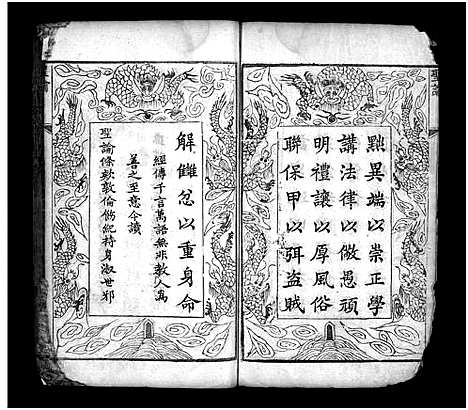 聖諭
黜異端以崇正學
講法律以儆愚頑
明禮讓以厚風俗
聯保甲以弭盜賊
解讎忿以重身命
經傳千言萬語無非教人為
善之至意今讀
聖諭條款敦倫飭紀持身淑世邪